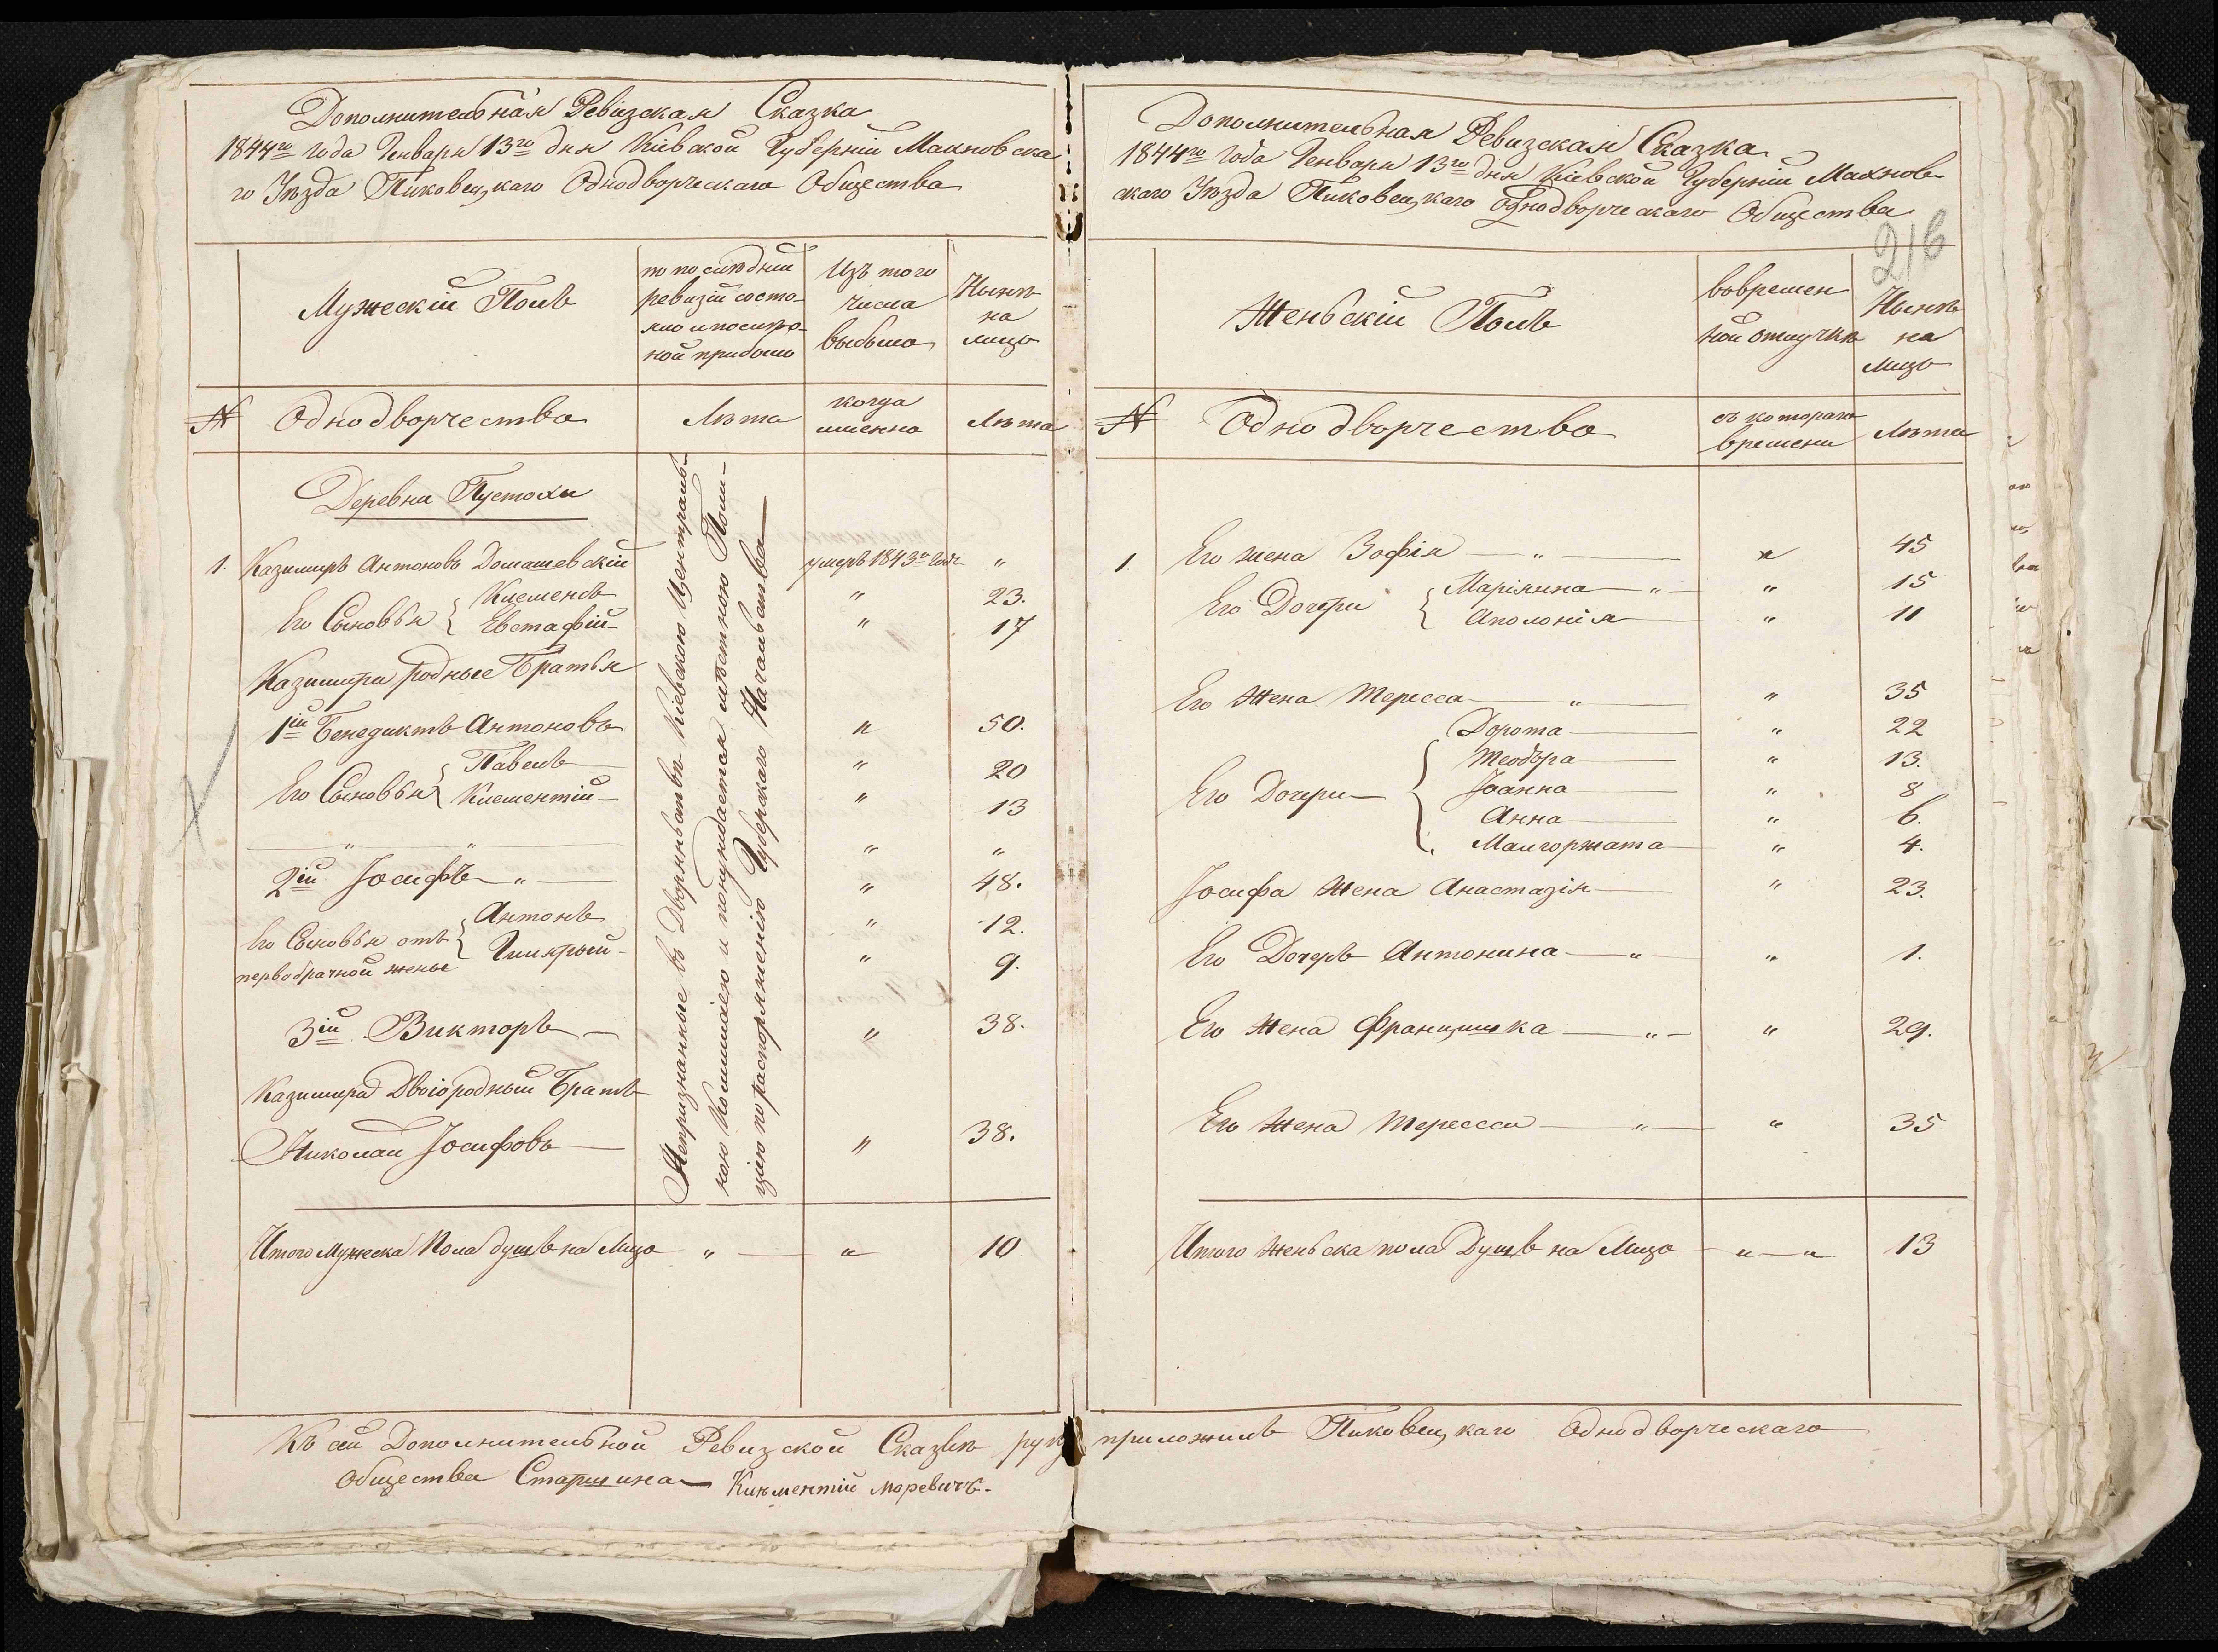 Дополнительная Ревизская Сказка
1844го года Генваря 13го дня Кіевской Губерніи Махновска
го Уѣзда Пиковецкаго Однодворческаго Общества
Мужескій Полъ
по послѣдній
ревизіи состо-
яло и послѣ о-
ной прибыло
Изъ того
числа
выбыло
Нынѣ
на
лицо
№ Однодворчества
Лѣта
когда
именно
Лѣта
Деревни Пустохи
1. Казимиръ Антоновъ Домашевскій умеръ 1843го года "
Его Сыновья { Клеменсъ " 23.
Евстафій " 17
Казимира родные Братья
1ій Бенедиктъ Антоновъ " 50.
Его Сыновья { Павелъ " 20
Клементій " 13
" " " "
2ій Іосифъ " " 48.
Его Сыновья отъ
первобрачной жены
{ Антонъ " 12.
" 9.
3ій Викторъ " 38.
Казимира Двоюродный Братъ
Николай Іосифовъ " 38.
Непризнанные въ Дворянствѣ Кіевскою Централь-
ною Коммиссіею и понуждается мѣстною Поли-
ціею по распоряженію Губерскаго Начальства
Итого Мужеска Пола душъ на Лицо " " 10
Дополнительная Ревизская Сказка
1844го Года Генваря 13го дня Кіевской Губерніи Махнов-
скаго Уѣзда Пиковецкаго Однодворческаго Общества
216
Женьскій Полъ
вовремен
ной отлучкѣ
Нынѣ
на
Лицо
№ Однодворчества
съ котораго
времени
Лѣта
1. Его жена Зофія " " 45
Его Дочери { Маріянна " " 15
Аполонія " 11
Его Жена Тересса " " 35
Дорота " 22
Теодора " 13.
Его Дочери { Іоанна " 8
Анна " 6.
Малгоржата " 4.
Іосифа Жена Анастазія " 23.
Его Дочерь Антонина " " 1.
Его Жена Францишка " " 29.
Его Жена Терессса " " 35
Итого Женьска пола Душъ на Лицо " " 13
Къ сей Дополнительной Ревизской Сказкѣ руку приложилъ Пиковецкаго Однодворческаго
Общества Старшина Клѣментій Моревичъ.